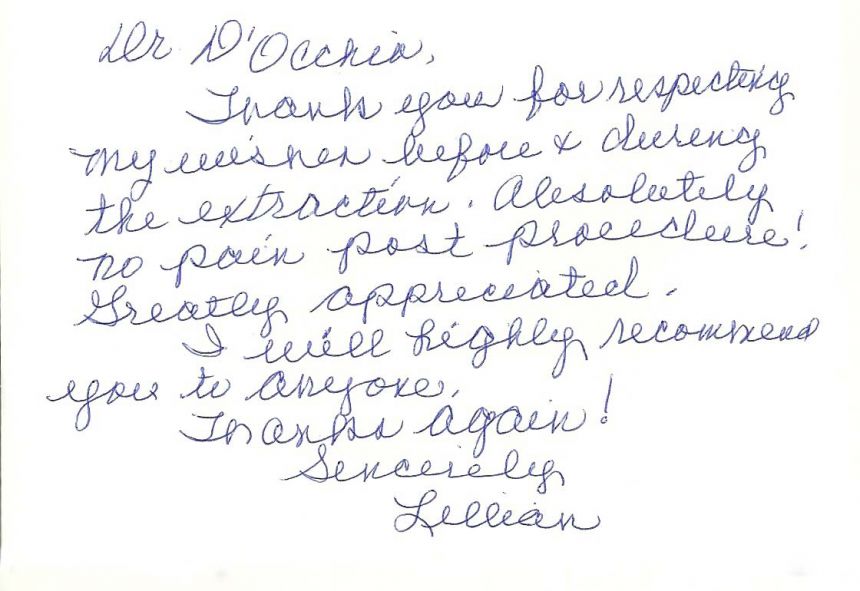 Dr D'Occhio,
Thank you for respecting
my wishes before & during
the extraction. Absolutely
no pain post procedure!
Greatly appreciated.
I will highly recommend
you to anyone.
Thanks again!
Sincerely
Lillian